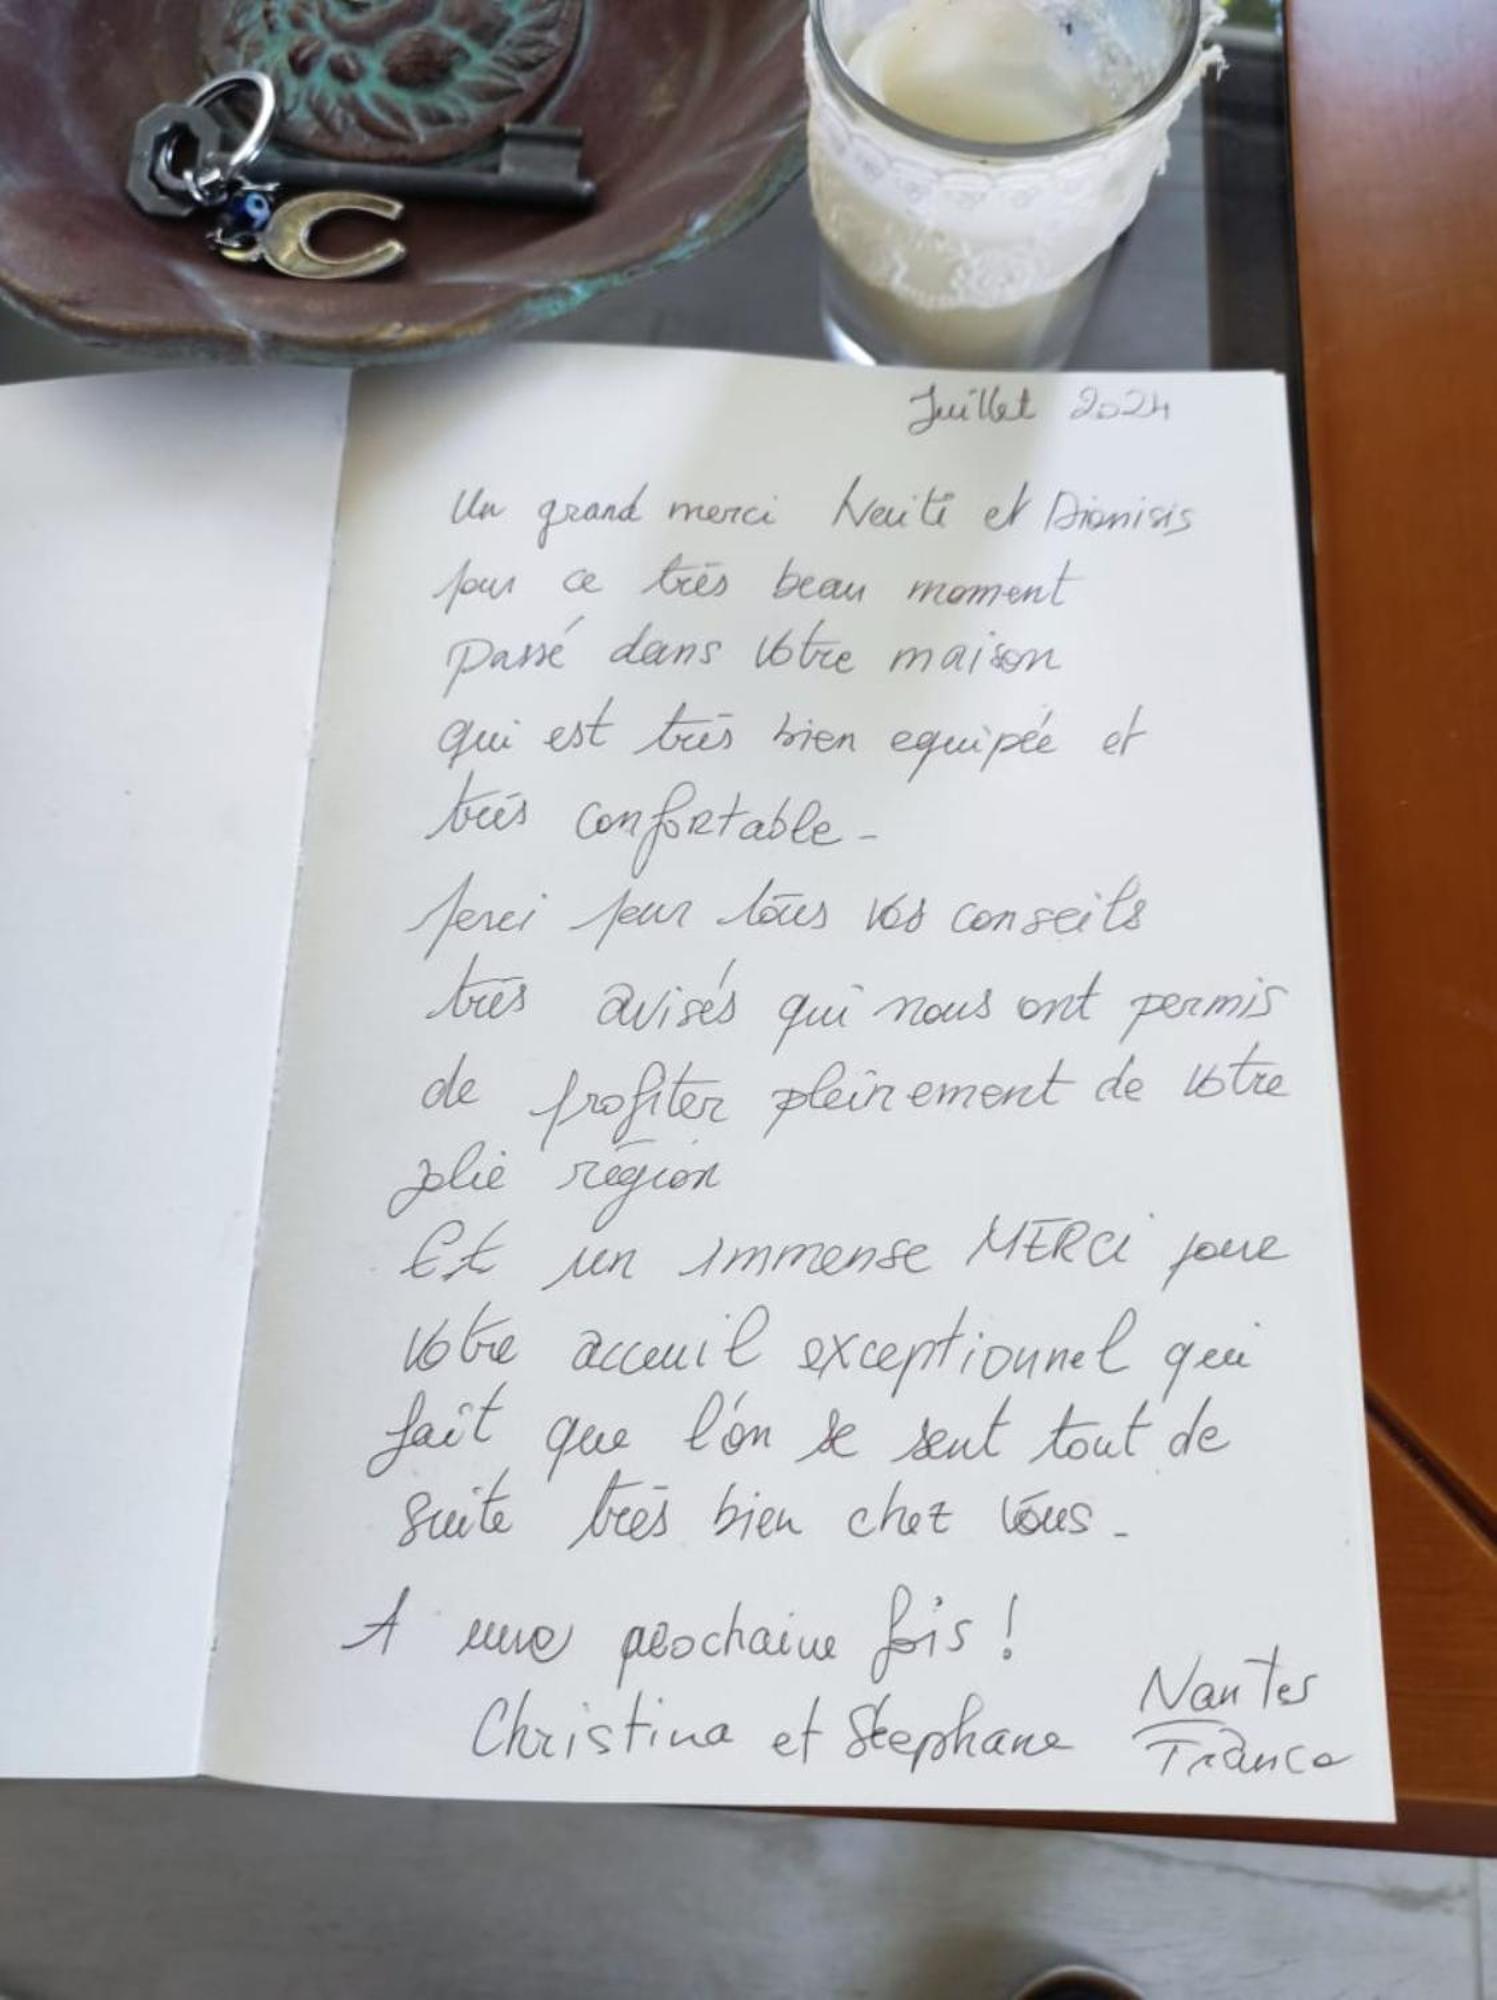 Juillet 2024
Un grand merci et Dionisis
pour ce très beau moment
passé dans votre maison
qui est très bien equipée et
très confortable -
Merci pour tous vos conseils
très avisés qui nous ont permis
de profiter pleinement de votre
jolie région
Et un immense MERCi pour
votre acceuil exceptionnel qui
fait que l'on se sent tout de
suite très bien chez vous -
A une prochaine fois !
Christina et Stephane
Nantes
France